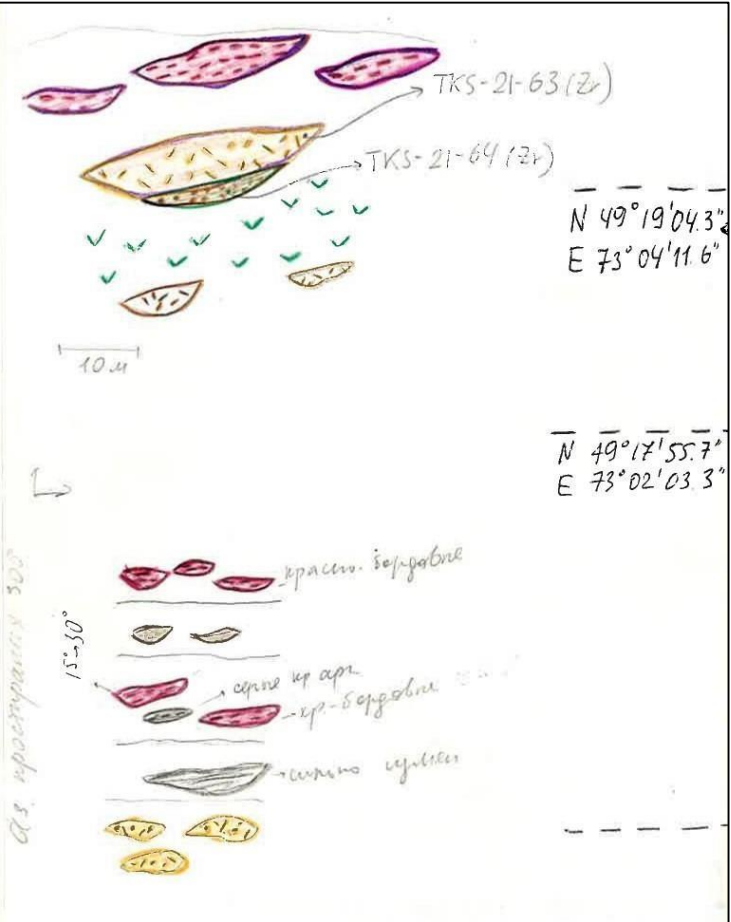 TKS-21-63 (Zr)
TKS-21-64 (Zr)
N 49°19'04.3"
E 73°04'11.6"
10 м
N 49°17'55.7"
E 73°02'03.3"
Аз. простирания 300°
15°-30°
красно-бордовые
серые кр арг
кр.-бордовые
сильно